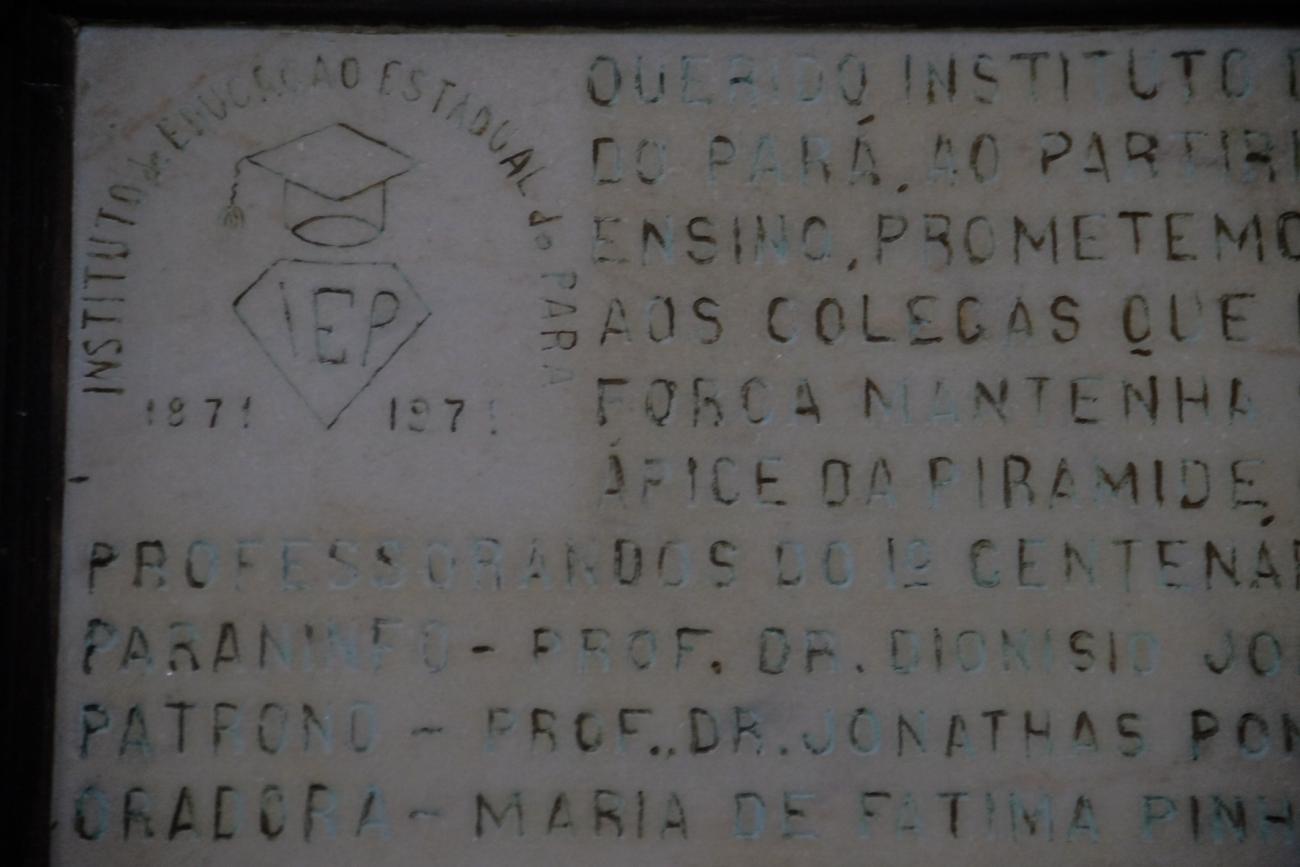 INSTITUTO de EDUCAÇÃO ESTADUAL do PARÁ
IEP
1871 1971
QUERIDO INSTITUTO
DO PARÁ, AO PARTIR
ENSINO, PROMETEMO
AOS COLEGAS QUE
FORÇA MANTENHA
ÁPICE DA PIRAMIDE
PROFESSORANDOS DO 1º CENTENÁ
PARANINFO - PROF. DR. DIONISIO JO
PATRONO - PROF. DR. JONATHAS PON
ORADORA - MARIA DE FATIMA PINH